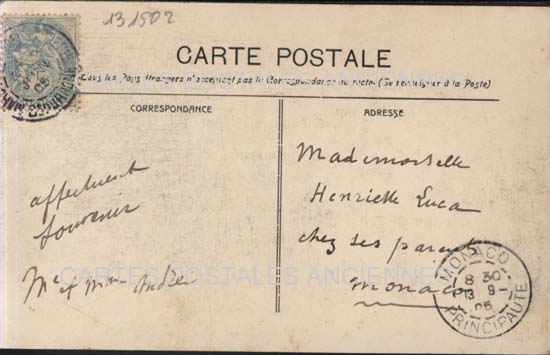 131502
CARTE POSTALE
Tous les Pays étrangers n'acceptent pas la Correspondance au recto (Se renseigner à la Poste)
CORRESPONDANCE
affectueux
souvenir
Mr et Mme André
ADRESSE
Mademoiselle
Henriette Luca
chez ses parents
Monaco
MONACO
8 30
13 9-
05
PRINCIPAUTE
CARTES POSTALES ANCIENNES